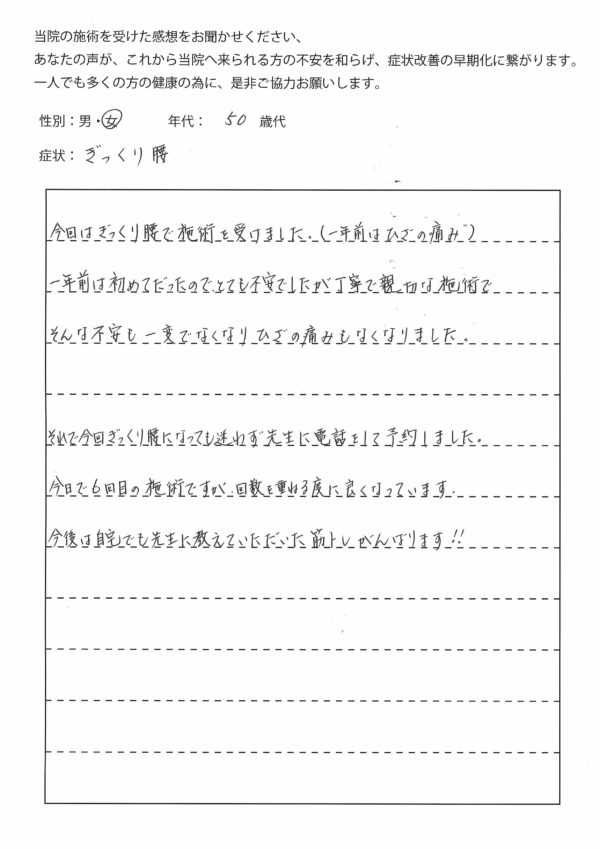 当院の施術を受けた感想をお聞かせください、
あなたの声が、これから当院へ来られる方の不安を和らげ、症状改善の早期化に繋がります。
一人でも多くの方の健康の為に、是非ご協力お願いします。
性別：男・女　年代：50 歳代
症状：ぎっくり腰
今回はぎっくり腰で施術を受けました。(一年前はひざの痛み)
一年前は初めてだったのでとても不安でしたが丁寧で親切な施術で
そんな不安も一変でなくなりひざの痛みもなくなりました。
それで今回ぎっくり腰になっても迷わず先生に電話をして予約しました。
今日で6回目の施術ですが、回数を重ねる度に良くなっています.
今後は自宅でも先生に教えていただいた筋トレがんばります!!